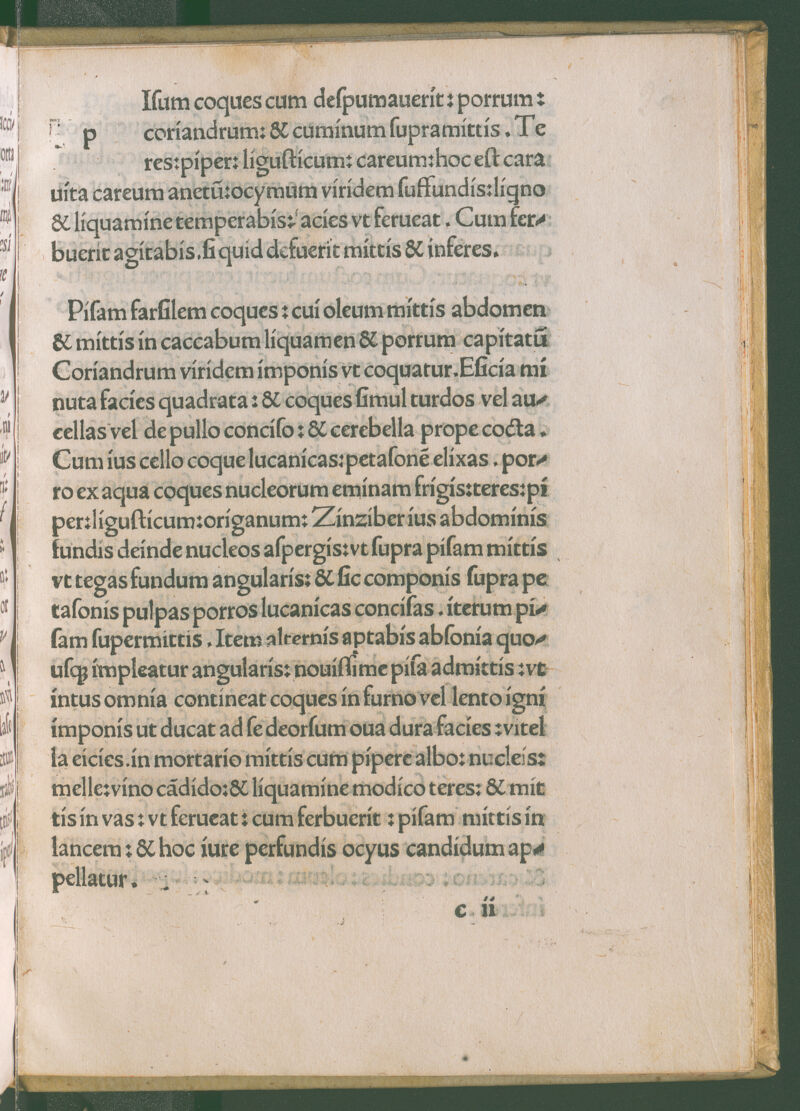 Iſum coques cum deſpumauerit: porrum:
p coriandrum: & cuminum ſupramittis. Te
res:piper: liguſticum: careum:hoc eſt cara
uita careum anetū:ocymum viridem ſuffundis:liqno
& liquamine temperabis: acies vt ferueat. Cum fer⸗
buerit agitabis.ſi quid defuerit mittis & inferes.
Piſam farſilem coques: cui oleum mittis abdomen
& mittis in caccabum liquamen & porrum capitatū
Coriandrum viridem imponis vt coquatur.Eſicia mi
nuta facies quadrata: & coques ſimul turdos vel au⸗
cellas vel de pullo conciſo: & cerebella prope cocta.
Cum ius cello coque lucanicas:petaſonē elixas. por⸗
ro ex aqua coques nucleorum eminam frigis:teres:pi
per:liguſticum:origanum: Zinziber ius abdominis
fundis deinde nucleos aſpergis:vt ſupra piſam mittis
vt tegas fundum angularis: & ſic componis ſupra pe
taſonis pulpas porros lucanicas conciſas. iterum pi⸗
ſam ſupermittis. Item alternis aptabis abſonia quo⸗
uſqꝫ impleatur angularis: nouiſſime piſa admittis: vt
intus omnia contineat coques in furno vel lento igni
imponis ut ducat ad ſe deorſum oua dura facies: vitel
la eicies.in mortario mittis cum pipere albo: nucleis:
melle:vino cādido:& liquamine modico teres: & mit
tis in vas: vt ferueat: cum ferbuerit: piſam mittis in
lancem: & hoc iure perfundis ocyus candidum ap⸗
pellatur.
c ii